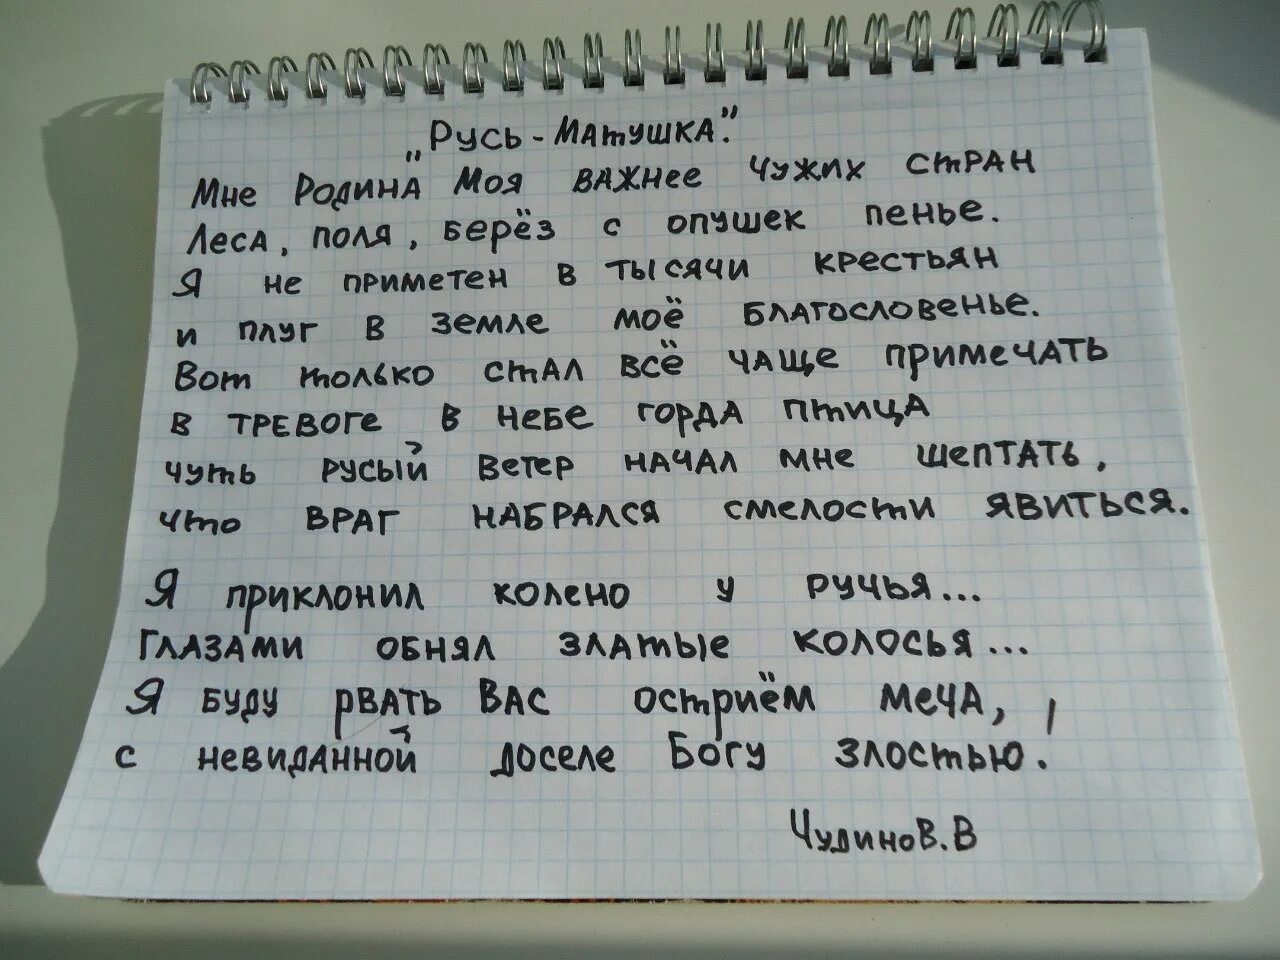 „Русь-Матушка".
Мне Родина Моя важнее чужих стран
Леса, поля, берёз с опушек пенье.
Я не приметен в тысячи крестьян
и плуг в земле моё благословенье.
Вот только стал всё чаще примечать
в тревоге в небе горда птица
чуть русый ветер начал мне шептать,
что враг набрался смелости явиться.
Я приклонил колено у ручья...
Глазами обнял златые колосья...
Я буду рвать вас остриём меча,
с невиданной доселе Богу злостью!
Чудинов.В